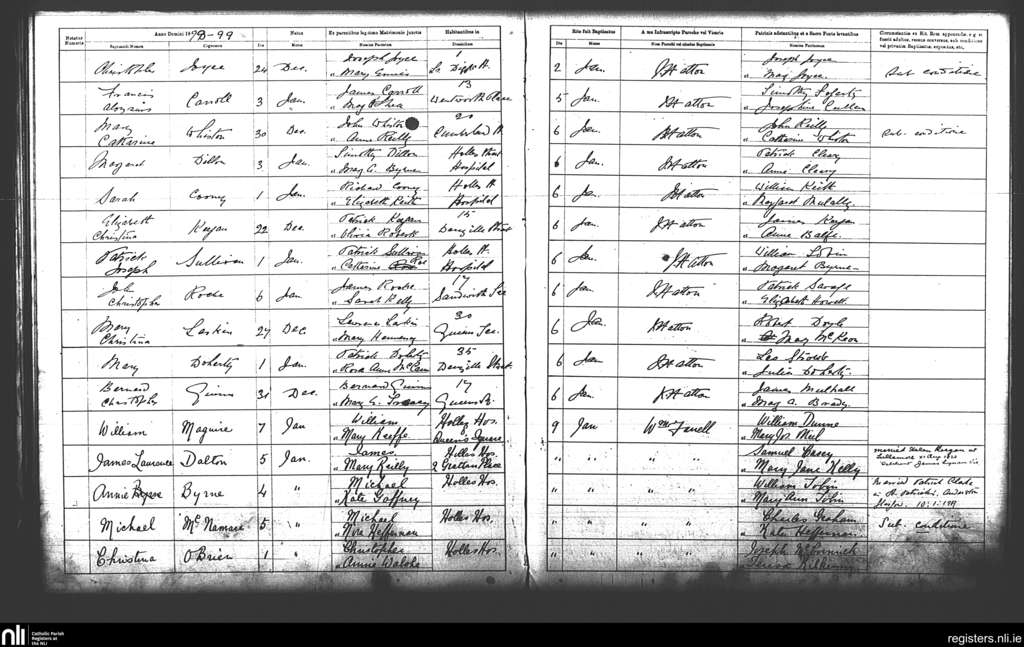 Notatur Numeris
Anno Domini 1898-99
Natus
Ex parentibus legitimo Matrimonio junctis
Habitantibus in
Baptismale Nomen
Cognomen
Die
Mense
Nomina Parentum
Domicilium
Christopher Joyce 24 Dec.
Joseph Joyce
" Mary Ennis
Francis Aloysius Carroll 3 Jan.
James Carroll
" Mag O'Shea
13 Wentworth Place
Mary Catharine Whiston 30 Dec.
John Whiston
" Anne Reilly
20 Cumberland St.
Margaret Dillon 3 Jan.
Timothy Dillon
" Mag C. Byrne
Holles Street Hospital
Sarah Cooney 1 Jan.
Richard Cooney
" Elizabeth Keith
Holles St. Hospital
Elizabeth Christina Keegan 22 Dec.
Patrick Keegan
" Olivia Roberts
15 Denzille Street
Patrick Joseph Sullivan 1 Jan.
Patrick Sullivan
" Catherine Roe
Holles St. Hospital
John Christopher Roche 6 Jan
James Roche
" Sarah Kelly
17 Sandwith Tce
Mary Christina Larkin 27 Dec
Lawrence Larkin
" Mary Hennessy
30 Queens Tce.
Mary Doherty 1 Jan.
Patrick Doherty
" Rose Anne McCann
35 Denzille Street
Bernard Christopher Quinn 31 Dec.
Bernard Quinn
" Mary
17 Queens
William Maguire 7 Jan
William
" Mary Keeffe
Holles Hos.
Queens Square
James Laurence Dalton 5 Jan.
James
" Mary Reilly
Holles Hos.
2 Grattan Place
Annie Byrne 4 "
Michael
" Kate Gaffney
Holles Hos.
Michael McNamara 5 "
Michael
" Nora Heffernan
Holles Hos.
Christina O'Brien 1 "
Christopher
" Annie Walshe
Holles Hos.
Rite fuit Baptizatus
A me Infrascripto Parocho vel Vicario
Patrinis adstantibus et e Sacro Fonte levantibus
Die
Mense
Nom Parochi vel ejusdem Baptizantis
Nomina Patrinorum
2 Jan. J Hatton
Joseph Joyce
" Mag Joyce
Sub conditione
5 Jan. J Hatton
Timothy
" Josephine Cullen
6 Jan. J Hatton
John Reilly
" Catherine Whiston
Sub. conditione
6 Jan. J Hatton
Patrick Cleary
" Anne Cleary
6 Jan. J Hatton
William Keith
" Margaret Mulally
6 Jan. J Hatton
James Keegan
" Anne Balfe
6 Jan. J Hatton
William
" Margaret Byrne
6 Jan. J Hatton
Patrick Savage
" Elizabeth Howell
6 Jan. J Hatton
Robert Doyle
" Mag McKeon
6 Jan J Hatton
Leo
" Julia Doherty
6 Jan J Hatton
James Mulhall
" Mag A. Brady
9 Jan Wm Farrell
William Dunne
" Mary Jos.
" " " "
Samuel Casey
" Mary Jane Kelly
married Helen
" " " "
William Tobin
" Mary Ann Tobin
Married Patrick Clarke
in St. Patricks, Anderston
" " " "
Charles Graham
" Kate Heffernan
Sub conditione
" " " "
Joseph McCormick
" Teresa Kilkenny
nli
Catholic Parish
Registers at
the NLI
registers.nli.ie